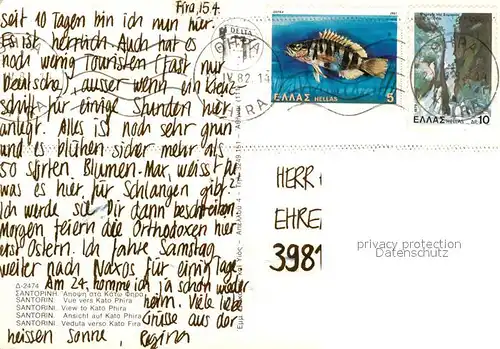 Fira, 15.4.
seit 10 Tagen bin ich nun hier.
Es ist herrlich. Auch hat es
noch wenig Touristen (fast nur
Deutsche), ausser wenn ein Kreuz-
schiff für einige Stunden hier
anlegt. Alles ist noch sehr grün
und es blühen sicher mehr als
50 Sorten Blumen. Max, weisst Du
was es hier für Schlangen gibt?
Ich werde sie Dir dann beschreiben.
Morgen feiern die Orthodoxen hier
erst Ostern. Ich fahre Samstag
weiter nach Naxos für einige Tage
Am 24. komme ich ja schon wieder
heim. Viele liebe
Grüsse aus der
heissen Sonne, Regina
Δ-2474
ΣΑΝΤΟΡΙΝΗ. Άποψη στα Κάτω Φηρά
SANTORIN. Vue vers Kato Phira
SANTORINI. View to Kato Phira
SANTORIN. Ansicht auf Kato Phira
SANTORINI. Veduta verso Kato Fira
ΕΛΛΑΣ HELLAS 5
ΕΛΛΑΣ HELLAS ΔΡ. 10
ΘΗΡΑ
IV.82.14
HERR
EHRE
3981
privacy protection
Datenschutz